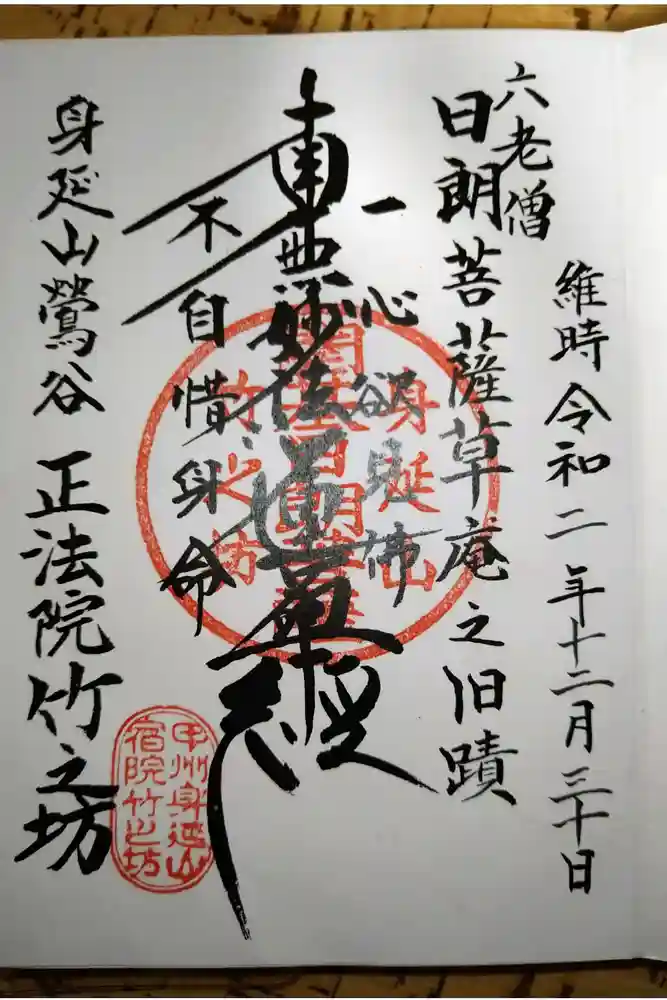 維時令和二年十二月三十日
六老僧
日朗菩薩草庵之旧蹟
一心欲見佛
南無妙法蓮華經
不自惜身命
身延山鶯谷 正法院竹之坊
身延山
開基日朗菩薩
竹之坊
甲州身延山
宿院竹之坊